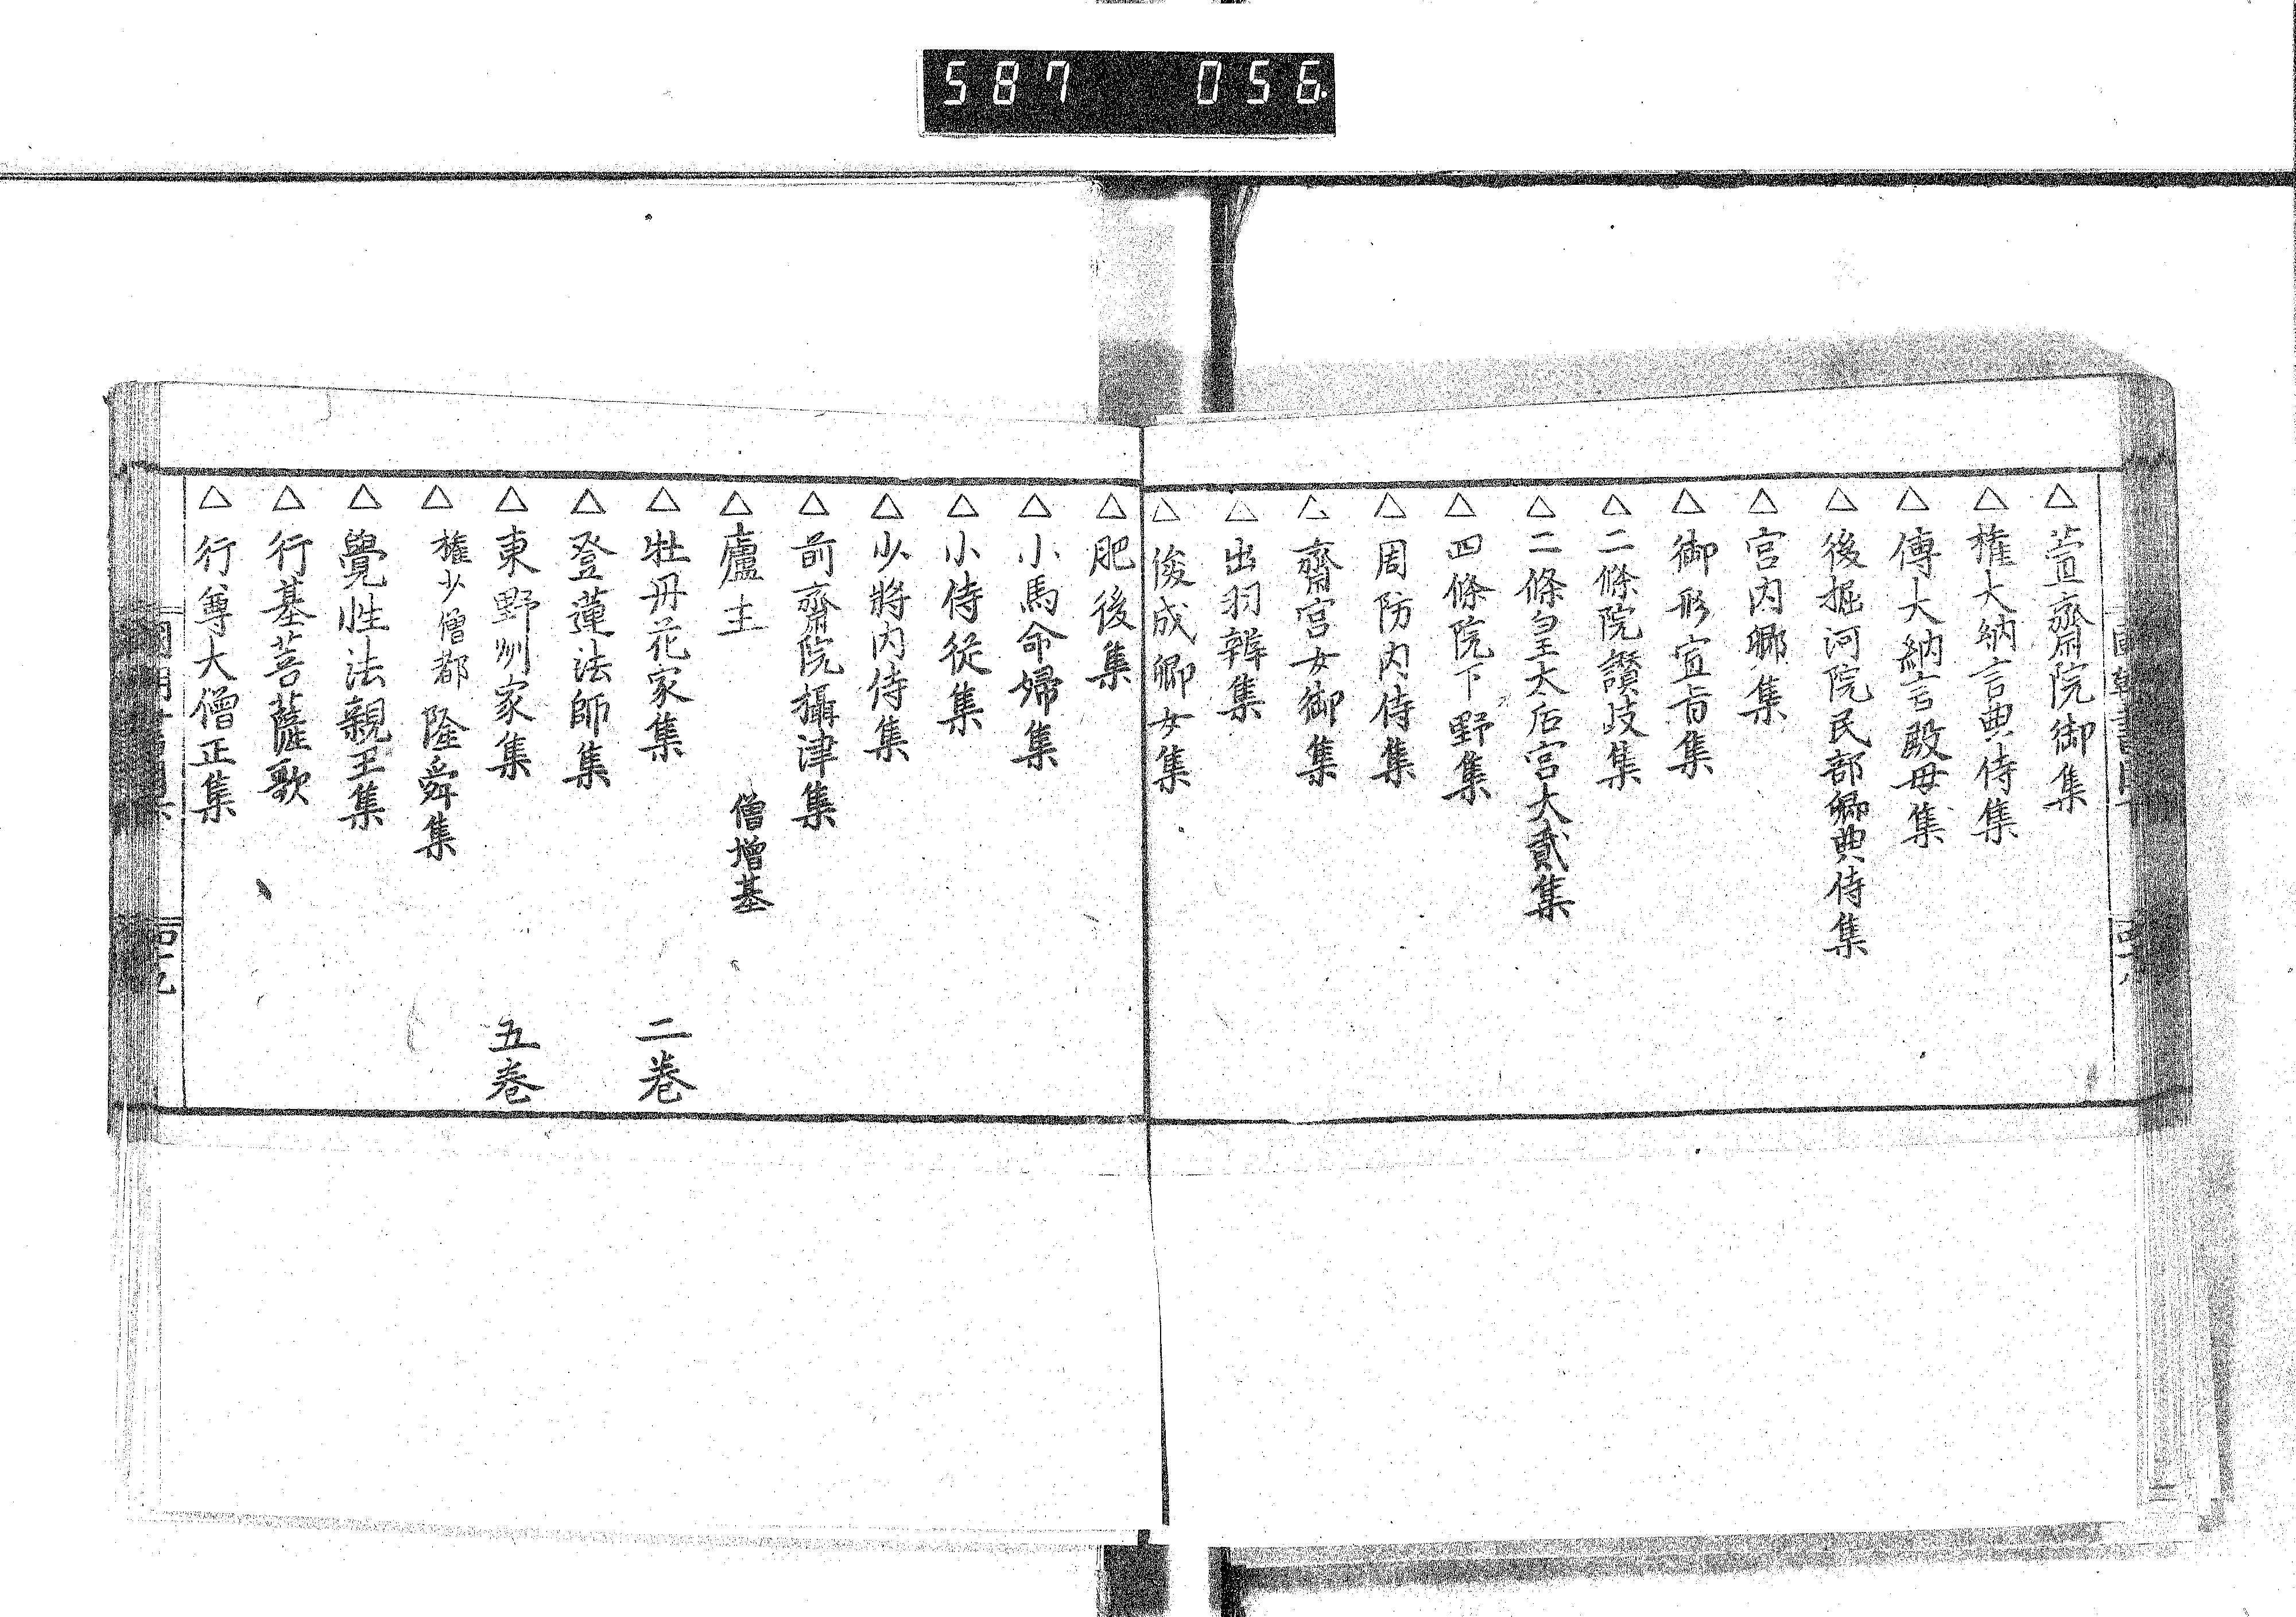 587 056
△萱齋院御集
△権大納言典侍集
△傅大納言殿母集
△後掘河院民部卿典侍集
△宮内卿集
△御形宣旨集
△二條院讃岐集
△二條皇太后宮大貳集
△四條院下野集
△周防内侍集
△齋宮女御集
△出羽辨集
△俊成卿女集
△肥後集
△小馬命婦集
△小侍従集
△少將内侍集
△前齋院攝津集
△廬主 僧増基
△牡丹花家集 二巻
△登蓮法師集
△東野州家集 五巻
△権少僧都隆舜集
△覺性法親王集
△行基菩薩歌
△行尊大僧正集